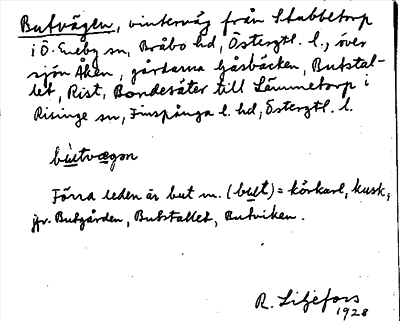 Butvägen, vinterväg från Stubbetorp
i Ö. Eneby sn, Bråbo hd, Östergtl. l., över
sjön Åken, gårdarna Gåsbäcken, Butstal-
let, Rist, Bondesäter till Lämmetorp i
Risinge sn, Finspånga l. hd, Östergtl. l.
bu̲tvæ̲gən
Förra leden är but m. (bu̲t) = körkarl, kusk;
jfr. Butgården, Butstallet, Butviken.
R. Liljefors
1928